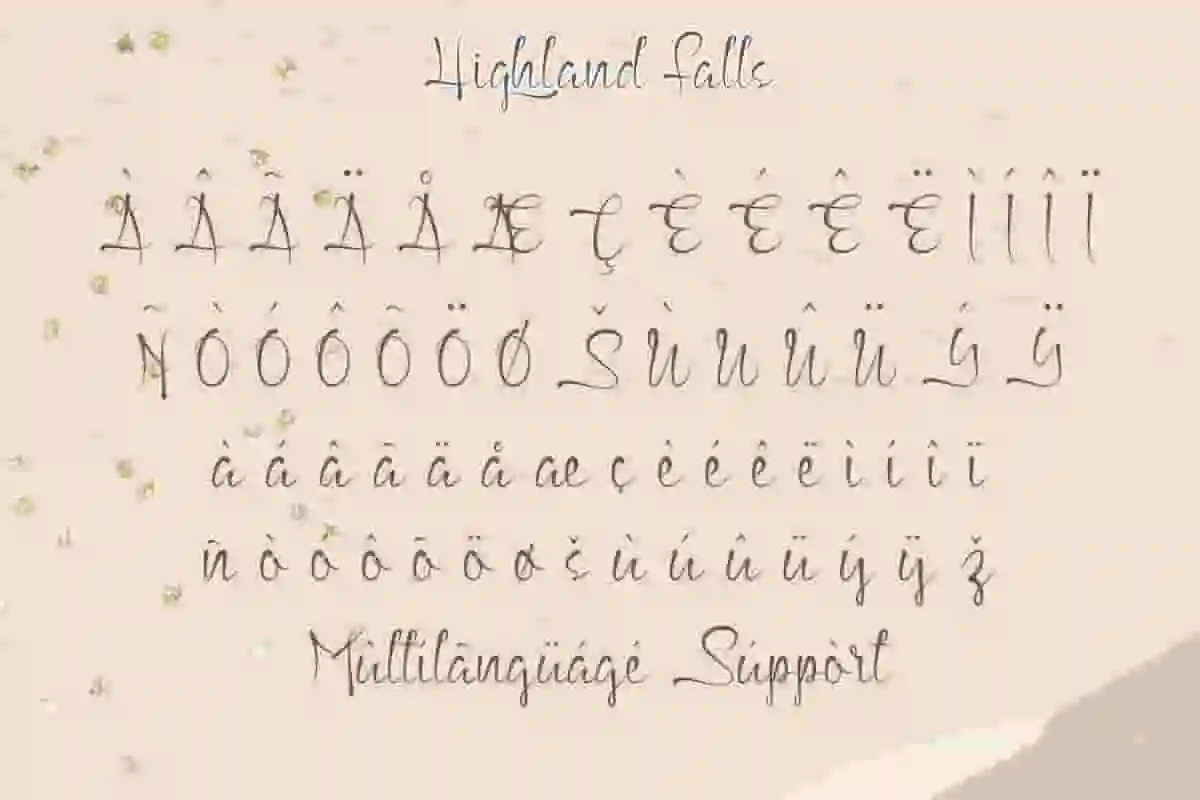 Highland Falls
À Â Ã Ä Å Æ Ç È É Ê Ë Ì Í Î Ï
Ñ Ò Ó Ô Õ Ö Ø Š Ù U Û Ü Ý Ÿ
à á â ã ä å æ ç è é ê ë ì í î ï
ñ ò ó ô õ ö ø š ù ú û ü ý ÿ ž
Mûltílãngüágé Súppòrt